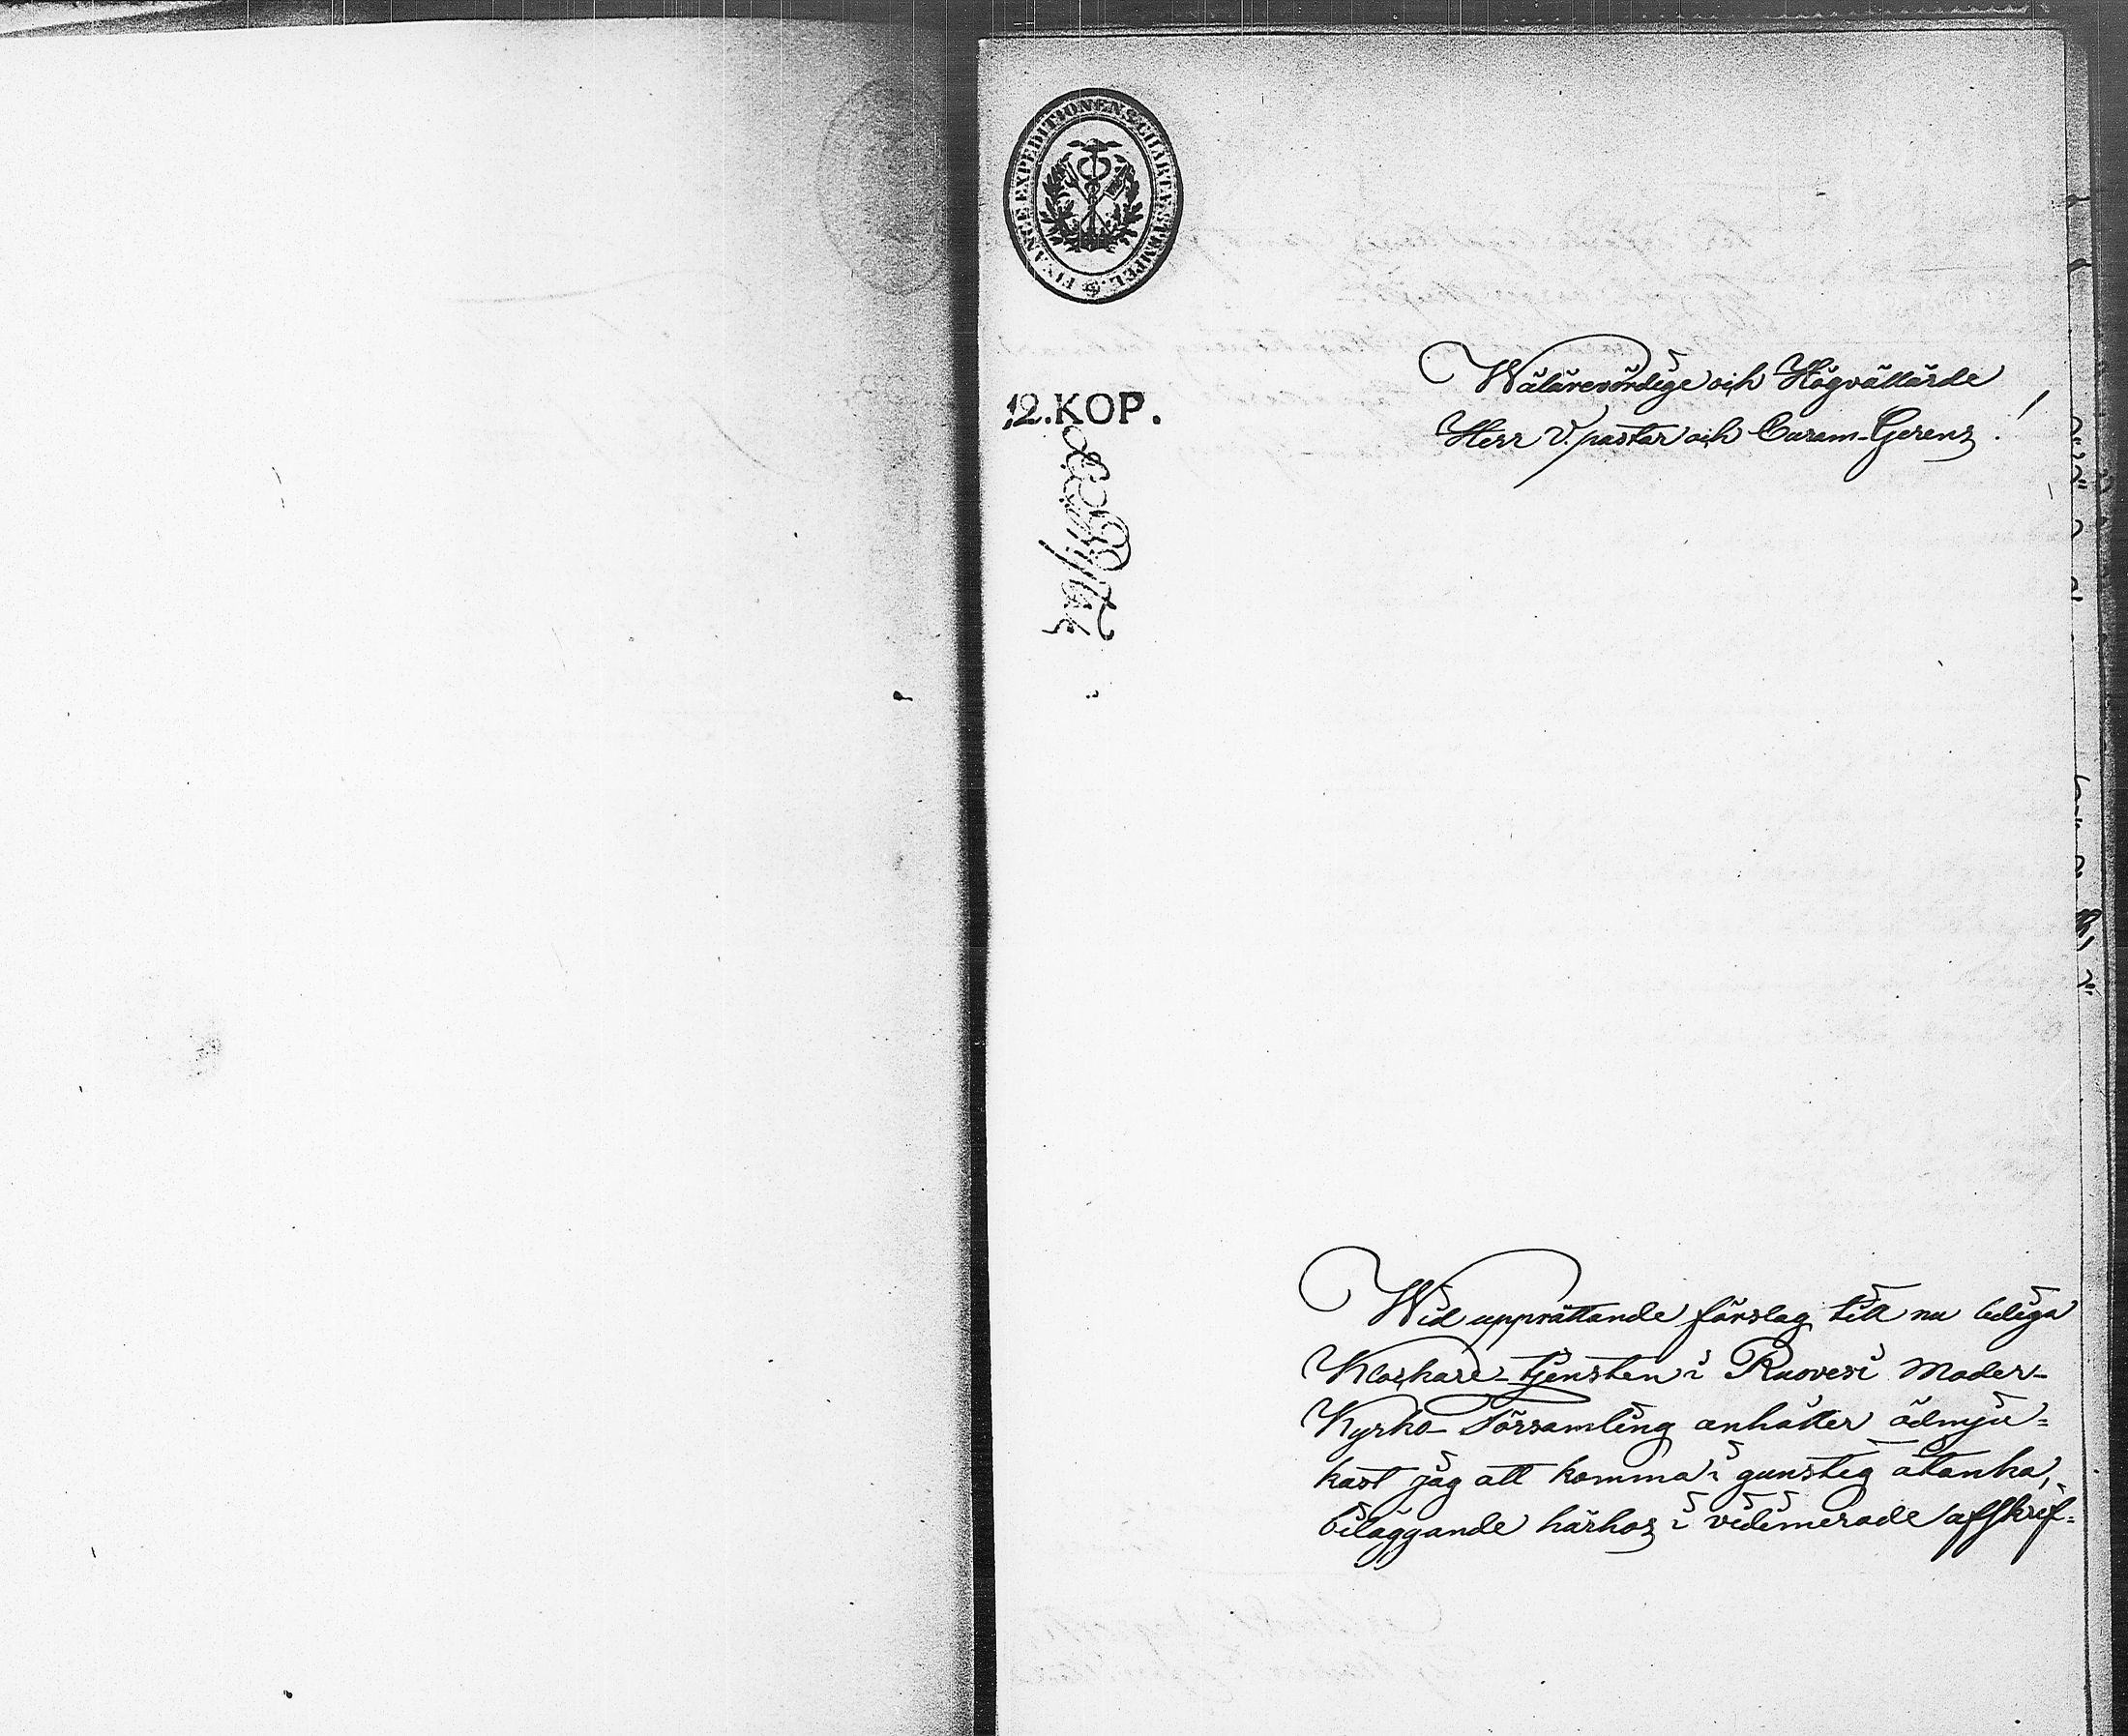 FINANCE EXPEDITIONENS CHARTÆ STEMPEL.
12.KOP.
Wälärevördige och Högvällärde
Herr V. pastor och Curam-Gerens!
Wid upprättande förslag till nu lediga
Klockare-tjensten i Ruovesi Moder-
Kyrko-Församling anhåller ödmju=
kast jag att komma i gunstig åtanka,
biläggande härhos i vidimerade afskrif=